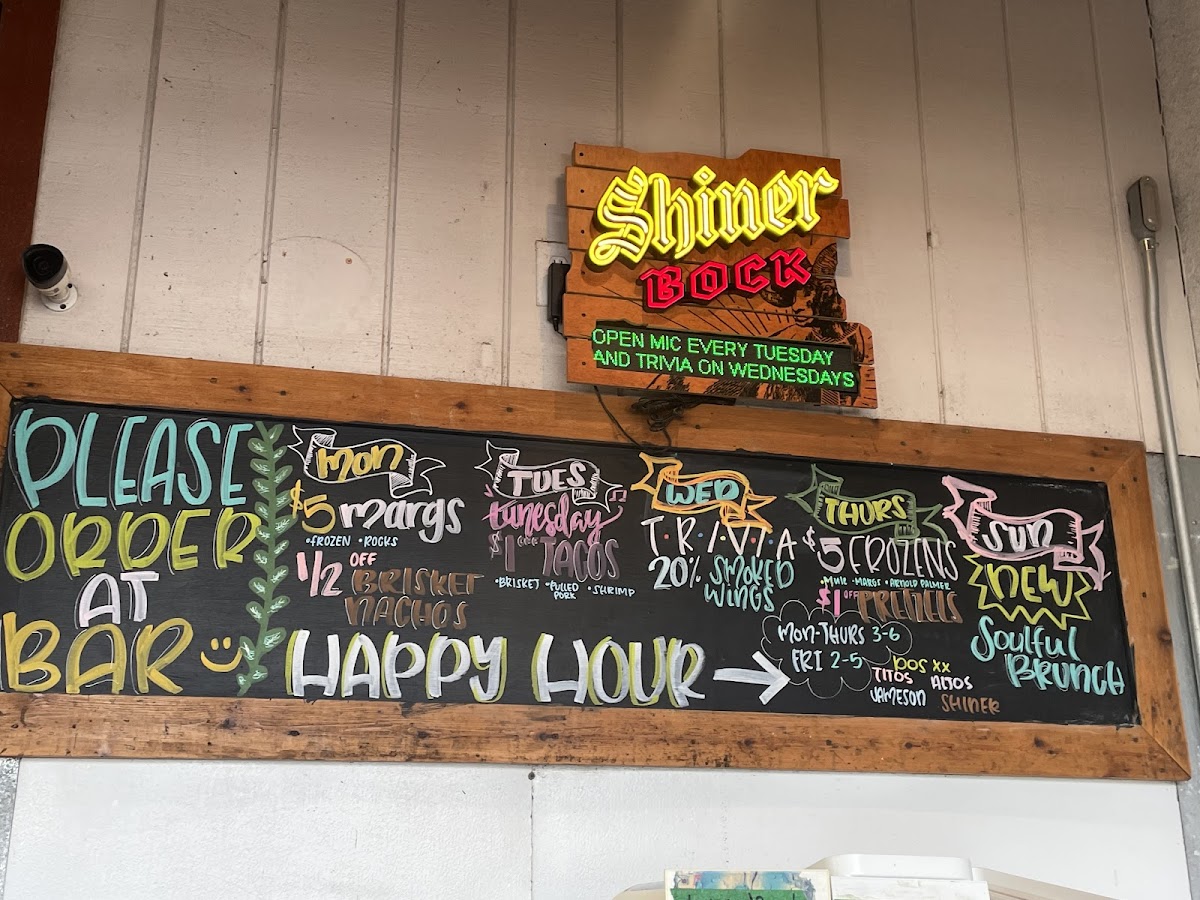 Shiner
BOCK
OPEN MIC EVERY TUESDAY
AND TRIVIA ON WEDNESDAYS
PLEASE
ORDER
AT
BAR
MON
$5 margs
•FROZEN •ROCKS
1/2 OFF
BRISKET
NACHOS
TUES
tunesday
$1 OFF TACOS
•BRISKET •PULLED PORK •SHRIMP
WED
T•R•I•V•I•A
20% SMOKED
WINGS
THURS
$5 FROZENS
•MULE •MARGS •ARNOLD PALMER
$1 OFF PRETZELS
SUN
NEW
Soulful
BRUNCH
HAPPY HOUR
MON-THURS 3-6
FRI 2-5
DOS XX
TITOS ALTOS
JAMESON SHINER